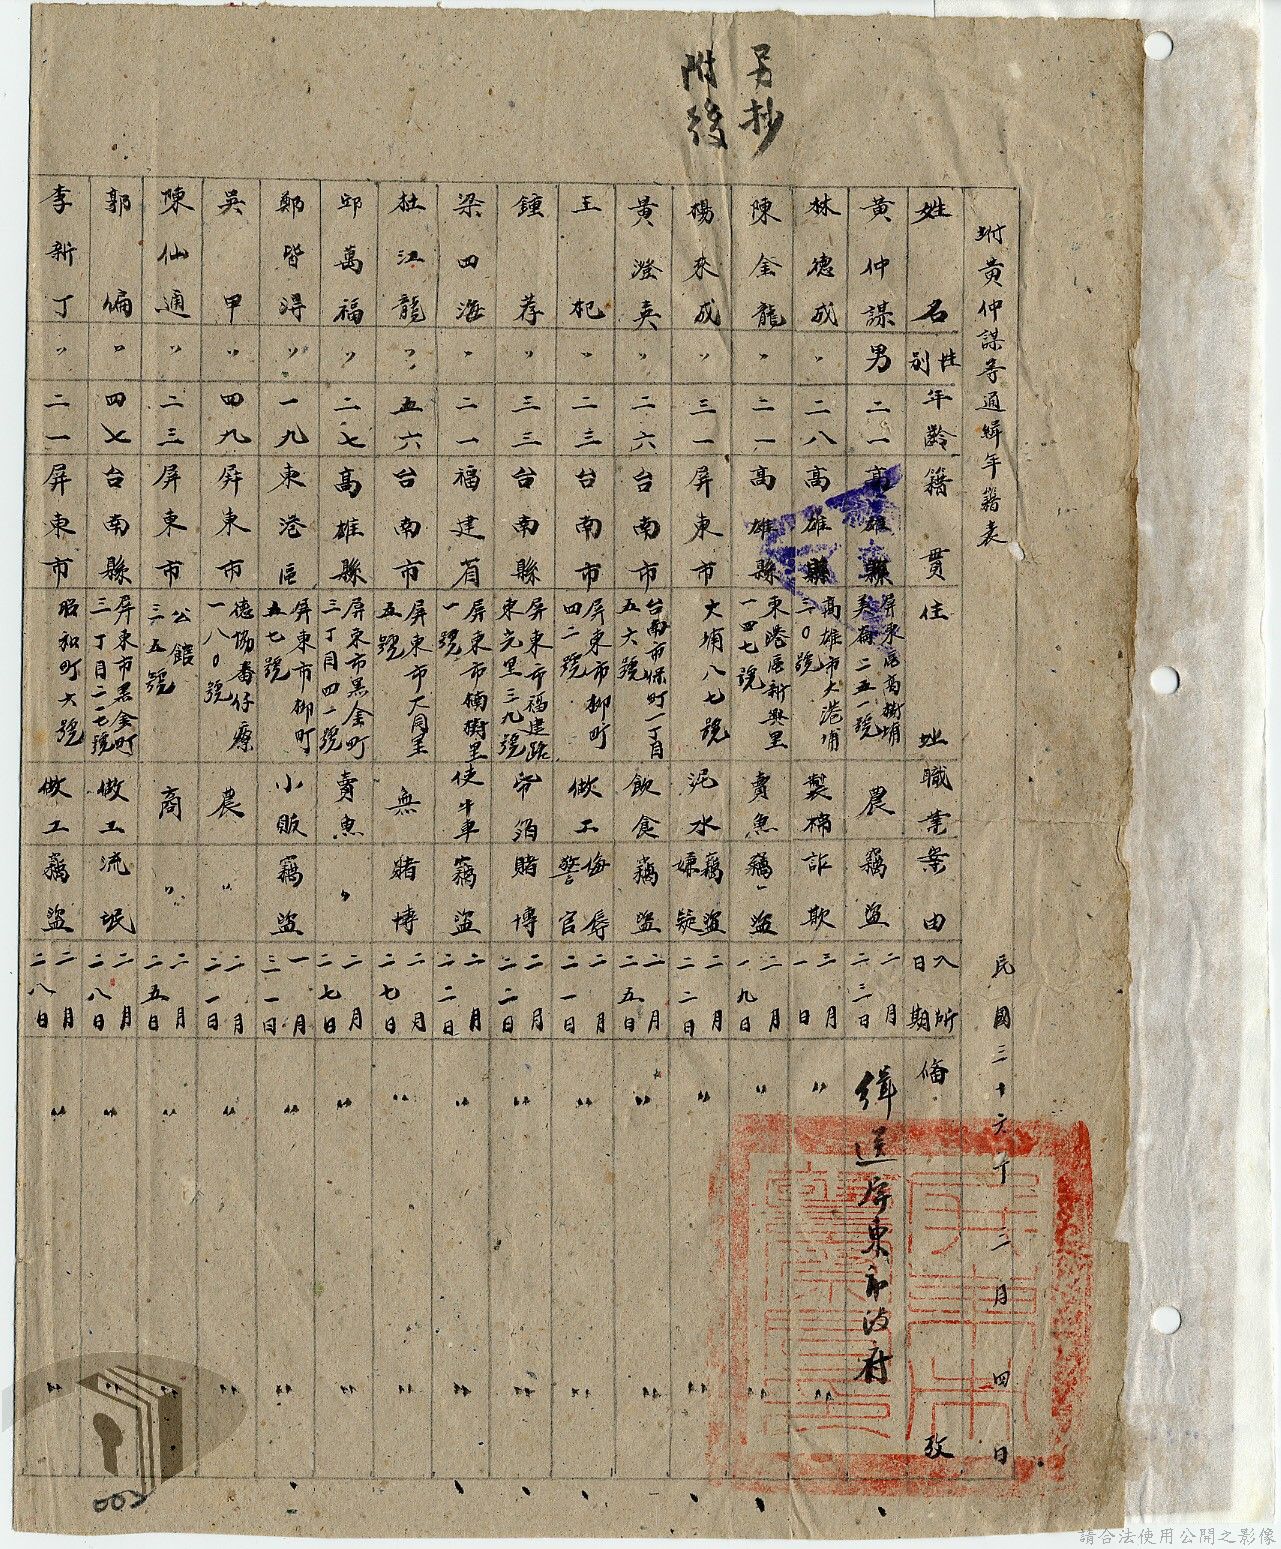 另抄
附後
坿黃仲謀等通緝年籍表 民國三十六年三月四日
姓名 性別 年齡 籍貫 住址 職業 案由 入所日期 備攷
黃仲謀 男 二一 高雄縣 屏東區高樹埔美崙二五一號 農 竊盜 二月二三日 緝送屏東市政府
林德成 〃 二八 高雄縣 高雄市大港埔三〇號 製棉 詐欺 三月一日 〃 〃
陳金龍 〃 二一 高雄縣 東港區新興里一四七號 賣魚 竊盜 二月一九日 〃 〃
楊來成 〃 三一 屏東市 大埔八七號 泥水 竊盜嫌疑 二月二二日 〃 〃
黃澄英 〃 二六 台南市 台南市保町一丁目五六號 飲食 竊盜 二月二五日 〃 〃
王杞 〃 二三 台南市 屏東市柳町四二號 做工 侮辱警官 二月二一日 〃 〃
鍾荐 〃 三三 台南縣 屏東市福建路東光里三九號 賭博 二月二二日 〃 〃
梁四海 〃 二一 福建省 屏東市楠樹里一號 使牛車 竊盜 二月二二日 〃 〃
杜江龍 〃 五六 台南市 屏東市大同里五號 無 賭博 二月二七日 〃 〃
邱萬福 〃 二七 高雄縣 屏東市黑金町三丁目四一號 賣魚 〃 二月二七日 〃 〃
鄭皆得 〃 一九 東港區 屏東市柳町五七號 小販 竊盜 一月三一日 〃 〃
吳甲 〃 四九 屏東市 德協番仔寮一八〇號 農 〃 二月二一日 〃 〃
陳仙通 〃 二三 屏東市 公館三五號 商 〃 二月二五日 〃 〃
郭偏 〃 四七 台南縣 屏東市黑金町三丁目二一七號 做工 流氓 二月二八日 〃 〃
李新丁 〃 二一 屏東市 昭和町六號 做工 竊盜 二月二八日 〃 〃
請合法使用公開之影像